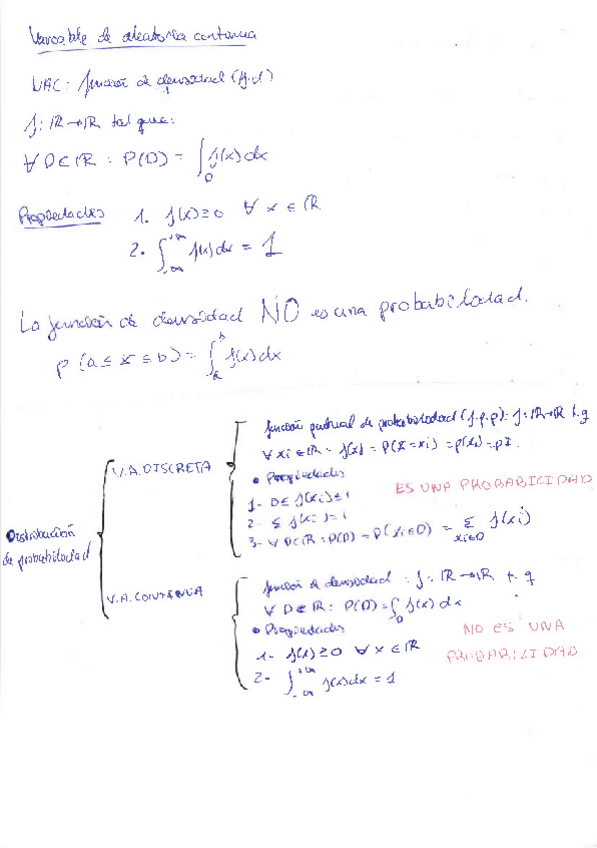 Variable de aleatoria continua
VAC: función de densidad (f.d)
f: IR → IR tal que:
∀ D ∈ IR : P(D) = ∫_D f(x) dx
Propiedades 1. f(x) ≥ 0 ∀ x ∈ IR
2. ∫_{-∞}^{+∞} f(x) dx = 1
La función de densidad NO es una probabilidad.
P (a ≤ x ≤ b) = ∫_a^b f(x) dx
Distribución de probabilidad
V.A. DISCRETA
función puntual de probabilidad (f.p.p): f: IR → IR t.q
∀ xi ∈ IR : f(x) = P(X = xi) = p(xi) = pi.
• Propiedades
1- 0 ≤ f(xi) ≤ 1
2- Σ f(xi) = 1
3- ∀ D ⊂ IR : P(D) = P(xi ∈ D) = Σ_{xi∈D} f(xi)
ES UNA PROBABILIDAD
V.A. CONTINUA
función de densidad : f: IR → IR t. q
∀ D ∈ IR : P(D) = ∫_D f(x) dx
• Propiedades
1- f(x) ≥ 0 ∀ x ∈ IR
2- ∫_{-∞}^{+∞} f(x) dx = 1
NO ES UNA
PROBABILIDAD